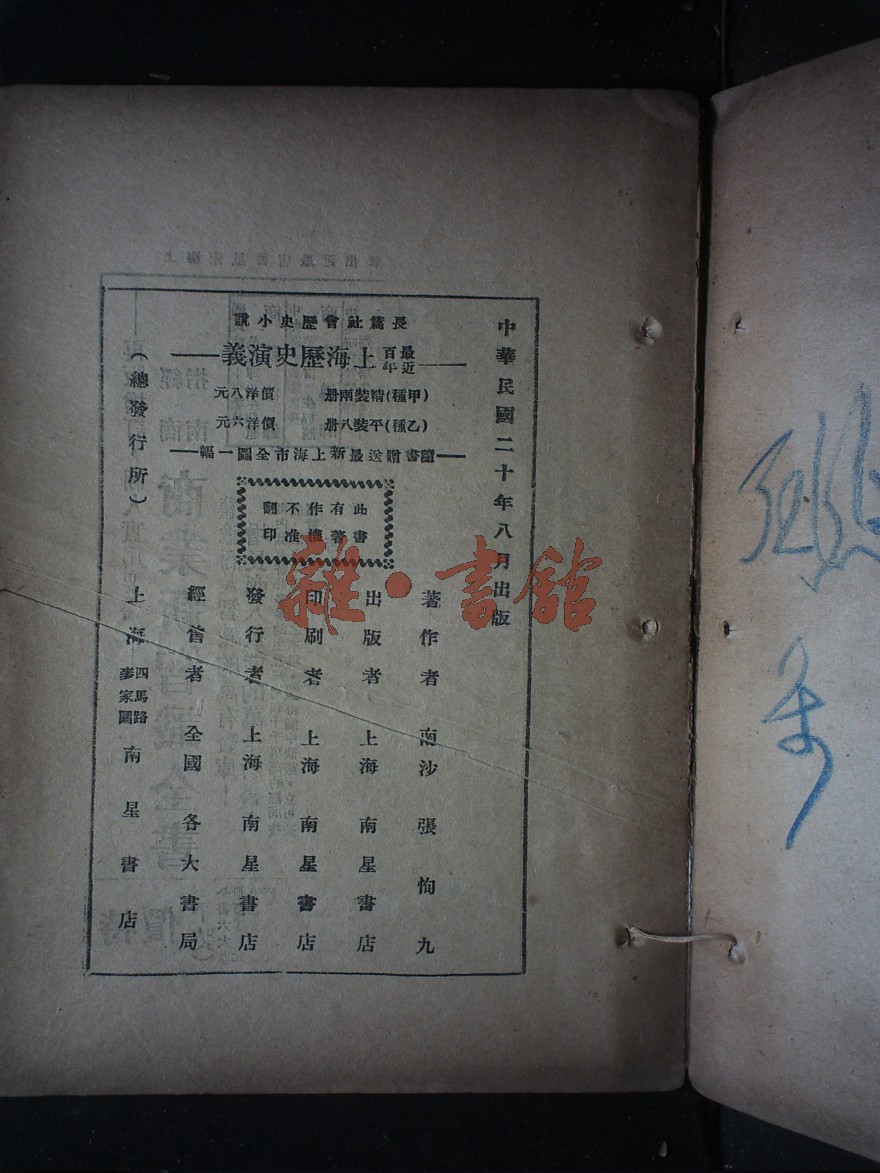 中華民國二十年八月出版
長篇社會歷史小說
最近百年上海歷史演義
(甲種)精裝兩册 價洋八元
(乙種)平裝八册 價洋六元
隨書贈送最新上海市全圖一幅
此書
有著
作權
不准
翻印
著作者 南沙張恂九
出版者 上海南星書店
印刷者 上海南星書店
發行者 上海南星書店
經售者 全國各大書局
(總發行所) 上海四馬路麥家圈南星書店
雜·書館